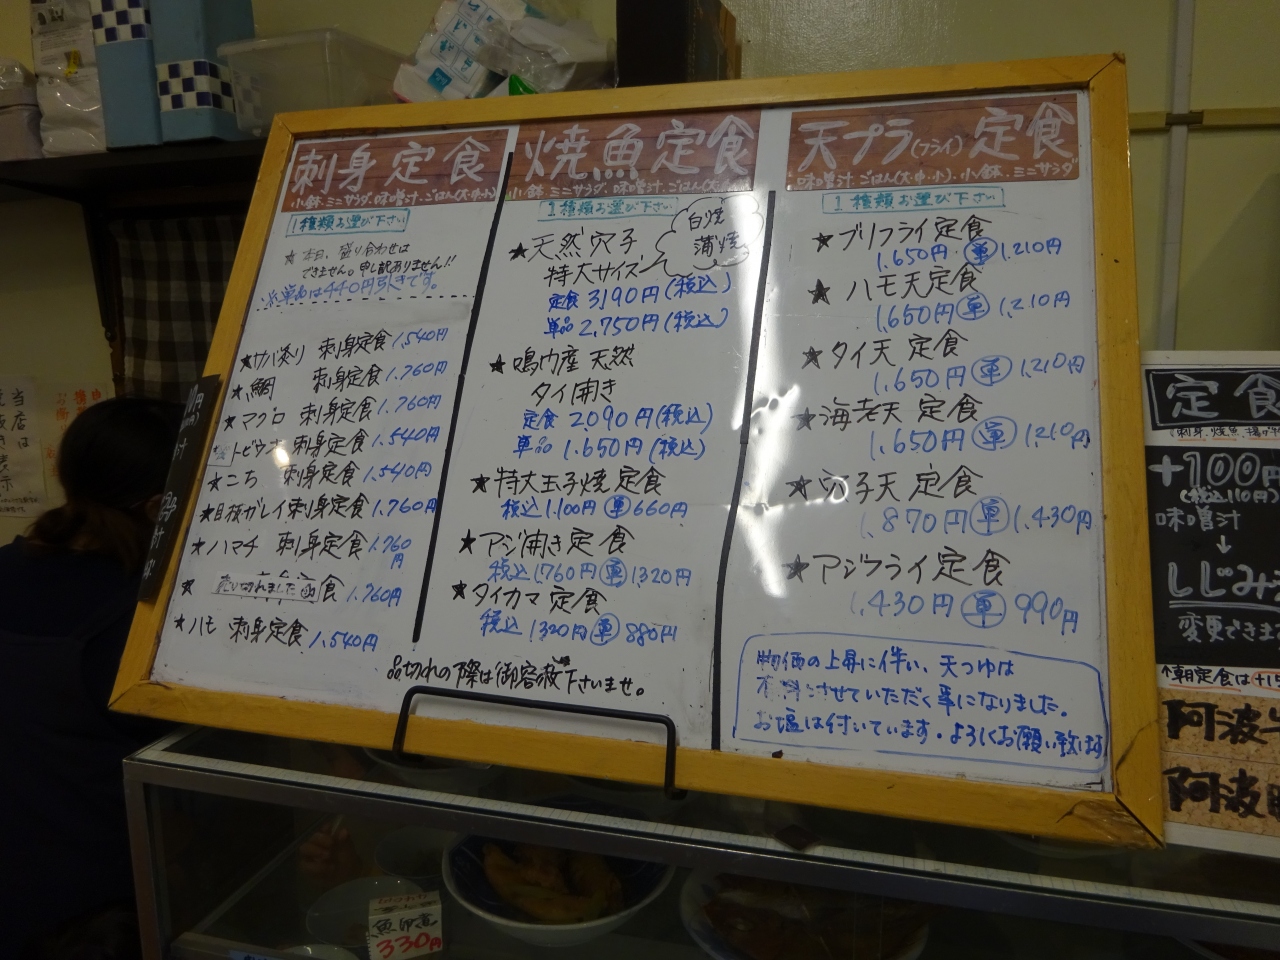 刺身定食
小鉢.ミニサラダ.味噌汁.ごはん(大.中.小)
1種類お選び下さい
★本日、盛り合わせは
できません。申し訳ありません!!
※単品は440円引きです。
★サバ炙り 刺身定食 1,540円
★鯛 刺身定食 1,760円
★マグロ 刺身定食 1,760円
トビウオ 刺身定食 1,540円
★こち 刺身定食 1,540円
★目板ガレイ刺身定食 1,760円
★ハマチ 刺身定食 1,760円
★売り切れました 食 1,760円
★ハモ 刺身定食 1,540円
焼魚定食
小鉢.ミニサラダ.味噌汁.ごはん(大
1種類お選び下さい
★天然穴子
白焼
蒲焼
特大サイズ
定食 3190円(税込)
単品 2,750円(税込)
★鳴門産 天然
タイ開き
定食 2090円(税込)
単品 1,650円(税込)
★特大玉子焼定食
税込 1,100円 単 660円
★アジ開き定食
税込 1,760円 単 1320円
★タイカマ定食
税込 1320円 単 880円
品切れの際は御容赦下さいませ。
天プラ(フライ)定食
味噌汁.ごはん(大.中.小).小鉢.ミニサラダ
1種類お選び下さい
★ブリフライ定食
1,650円 単 1,210円
★ハモ天定食
1,650円 単 1,210円
★タイ天定食
1,650円 単 1,210円
★海老天定食
1,650円 単 1,210円
★穴子天定食
1,870円 単 1,430円
★アジフライ定食
1,430円 単 990円
物価の上昇に伴い、天つゆは
させていただく事になりました。
お塩は付いています。よろしくお願い致します
定食
(刺身.焼魚.揚げ
+100円
(税込110円)
味噌汁
↓
しじみ
変更できま
朝定食は+15
阿波
阿波
魚卵煮
330円